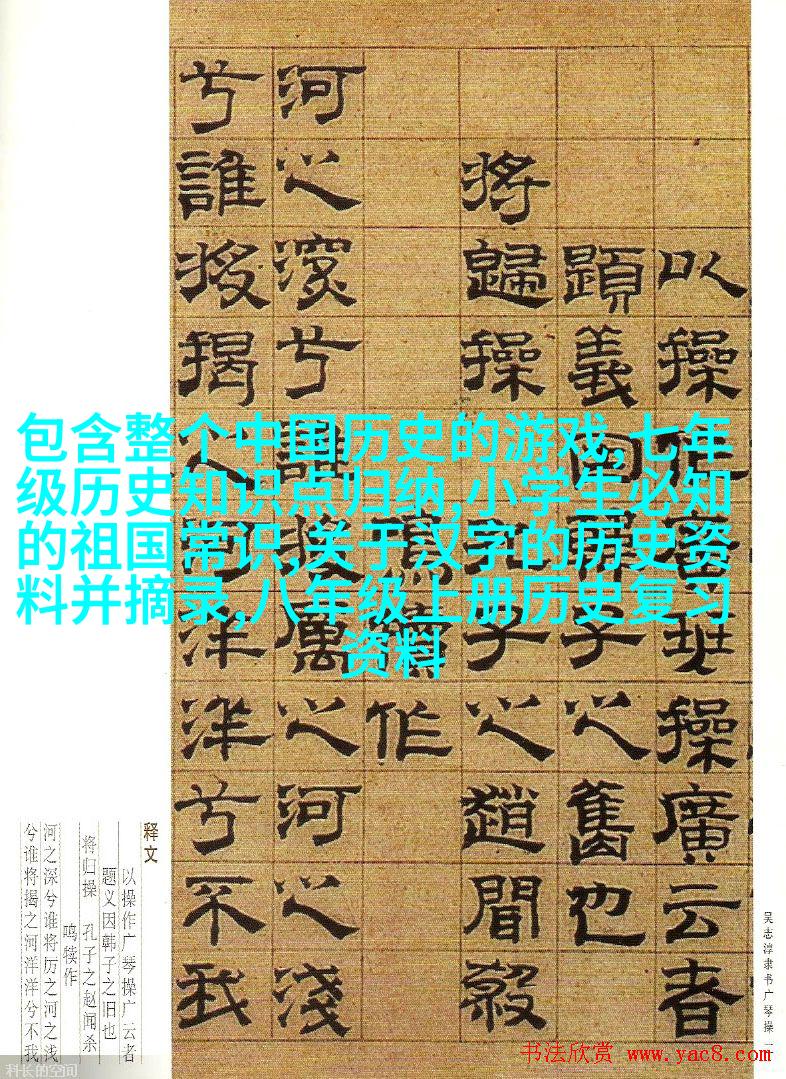 包含整个中国历史的游戏,七年
级历史知识点归纳,小学生必知
的祖国常识,关于汉字的历史资
料并摘录,八年级上册历史复习
资料
以操作操廣云者
題義因韓子之舊也
將歸操 孔子之趙聞殺
鳴犢作
河之深兮誰將厲之河之淺
兮誰將揭之河洋洋兮不我
释文
以操作广琴操广云者
题义因韩子之旧也
将归操 孔子之赵闻杀
鸣犊作
河之深兮谁将厉之河之浅
兮谁将揭之河洋洋兮不我
吴志淳隶书广琴操
书法欣赏 www.yac8.com
科长的空间